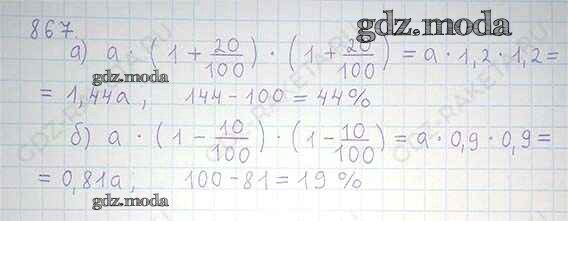 867. gdz.moda
а) a · (1 + 20/100) · (1 + 20/100) = a · 1,2 · 1,2 =
= 1,44a, 144 - 100 = 44%
б) a · (1 - 10/100) · (1 - 10/100) = a · 0,9 · 0,9 =
= 0,81a; 100 - 81 = 19%
gdz.moda gdz.moda
GDZ-RAKETA.RU